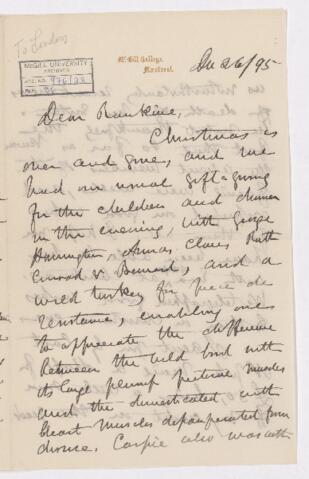 To London
McGILL UNIVERSITY
ARCHIVES
ACC. NO. 976/22
REF.
McGill College,
Montreal.
Dec 26/95
Dear Rankine,
Christmas is
over and gone, and we
had our usual gift-giving
for the children and dinner
in the evening, with George
Harrington, Annas, Clare, Ruth
Conrad & Bernard, and a
wild turkey for piece de
resistance, enabling one
to appreciate the difference
between the wild bird with
its large plump pectoral muscles
and the domesticated with
breast muscles depauperated from
disuse. also was with